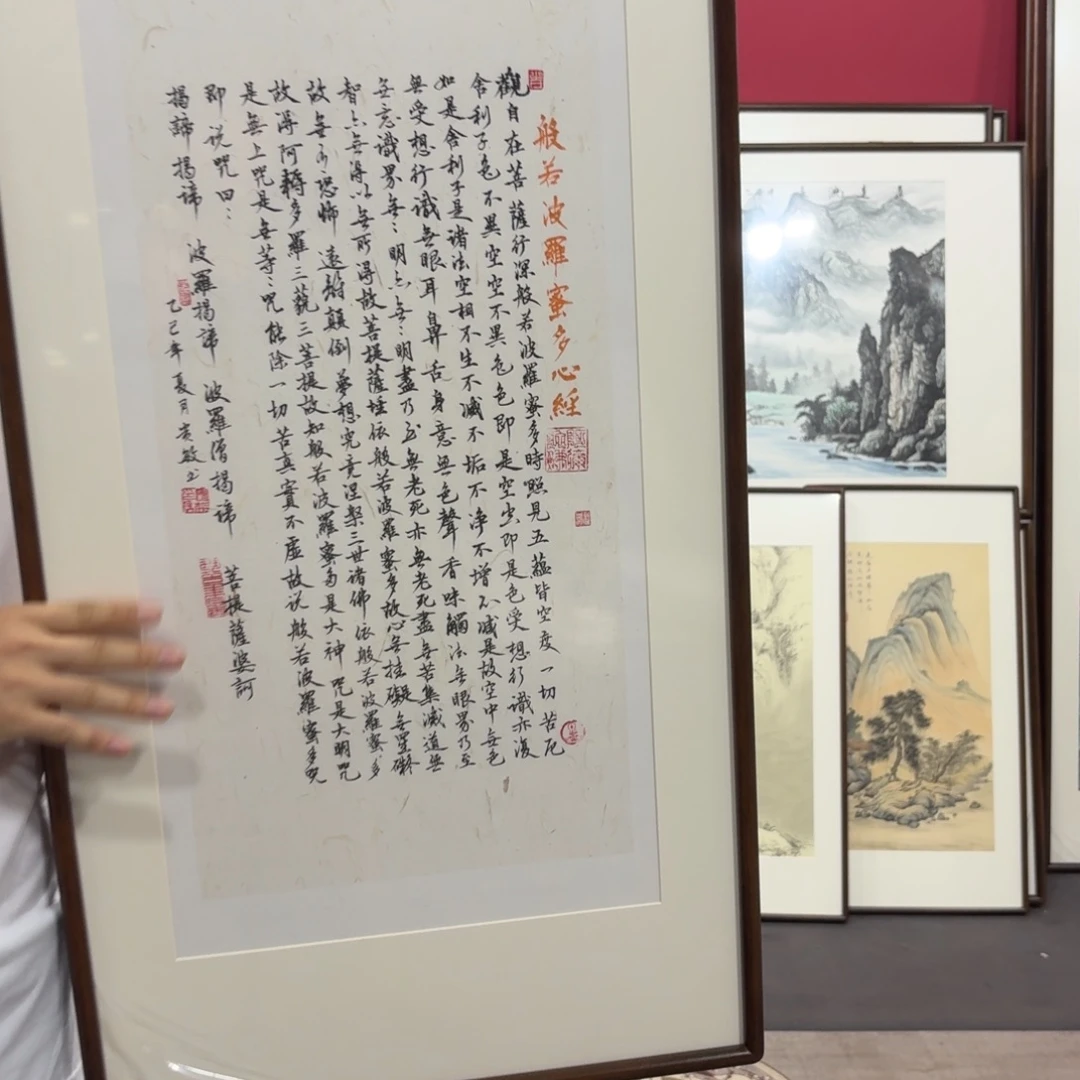 般若波羅蜜多心經
觀自在菩薩行深般若波羅蜜多時照見五蘊皆空度一切苦厄
舍利子色不異空空不異色色即是空空即是色受想行識亦復
如是舍利子是諸法空相不生不滅不垢不淨不增不滅是故空中無色
無受想行識無眼耳鼻舌身意無色聲香味觸法無眼界乃至
無意識界無ミ明亦無ミ明盡乃至無老死亦無老死盡無苦集滅道無
智亦無得以無所得故菩提薩埵依般若波羅蜜多故心無挂礙無罣礙
故無有恐怖遠離顛倒夢想究竟涅槃三世諸佛依般若波羅蜜多
故得阿耨多羅三藐三菩提故知般若波羅蜜多是大神咒是大明咒
是無上咒是無等ミ咒能除一切苦真實不虛故说般若波羅蜜多咒
即说咒曰：
揭諦揭諦 波羅揭諦 波羅僧揭諦 菩提薩婆訶
乙巳年夏月